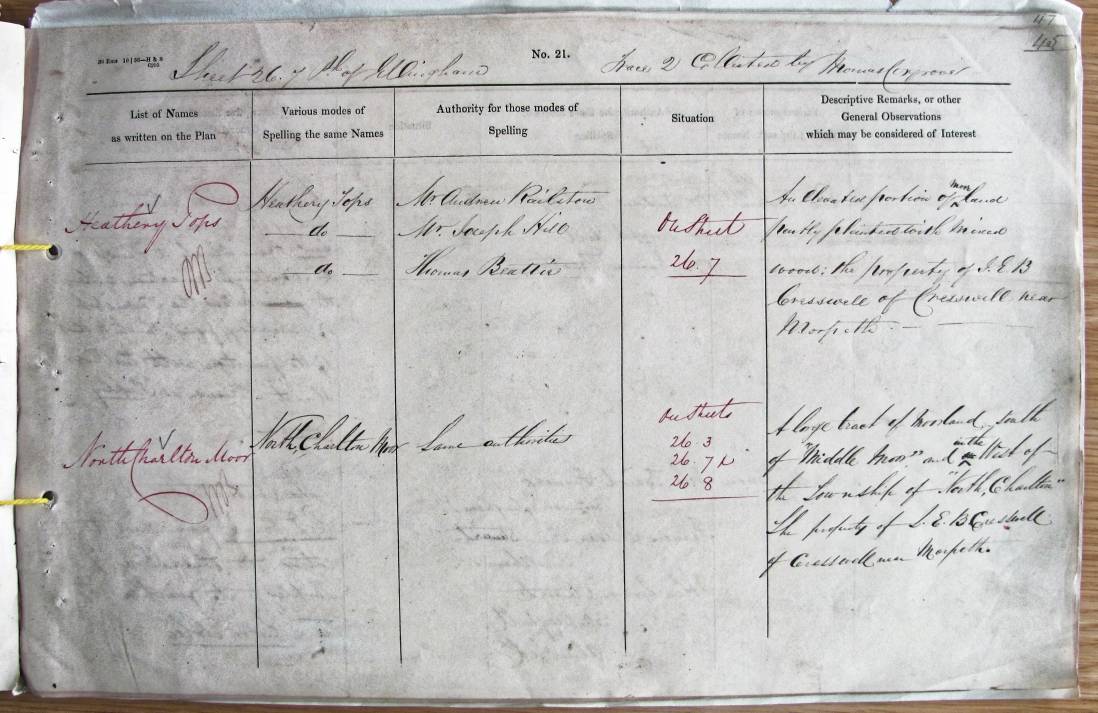 47
45
20 Eng 10 | 56—H & S
No. 21.
Sheet 26.7 Ph of Ellingham
Trace 2 Collected by Thomas Cosgrove
List of Names
as written on the Plan
Various modes of
Spelling the same Names
Authority for those modes of
Spelling
Situation
Descriptive Remarks, or other
General Observations
which may be considered of Interest
Heathery Tops
Heathery Tops
do
do
Mr. Andrew Railston
Mr. Joseph Hill
Thomas Beattie
On Sheet
26.7
An elevated portion of moor land
partly planted with Mixed
wood: the property of
Cresswell of Cresswell near
Morpeth.
North Charlton Moor
North Charlton Moor
Same authorities
On Sheets
26.3
26.7
26.8
A large tract of Moorland, south
of "Middle Moor" and in the West of
the Township of "North Charlton"
The property of Cresswell
of Cresswell near Morpeth.